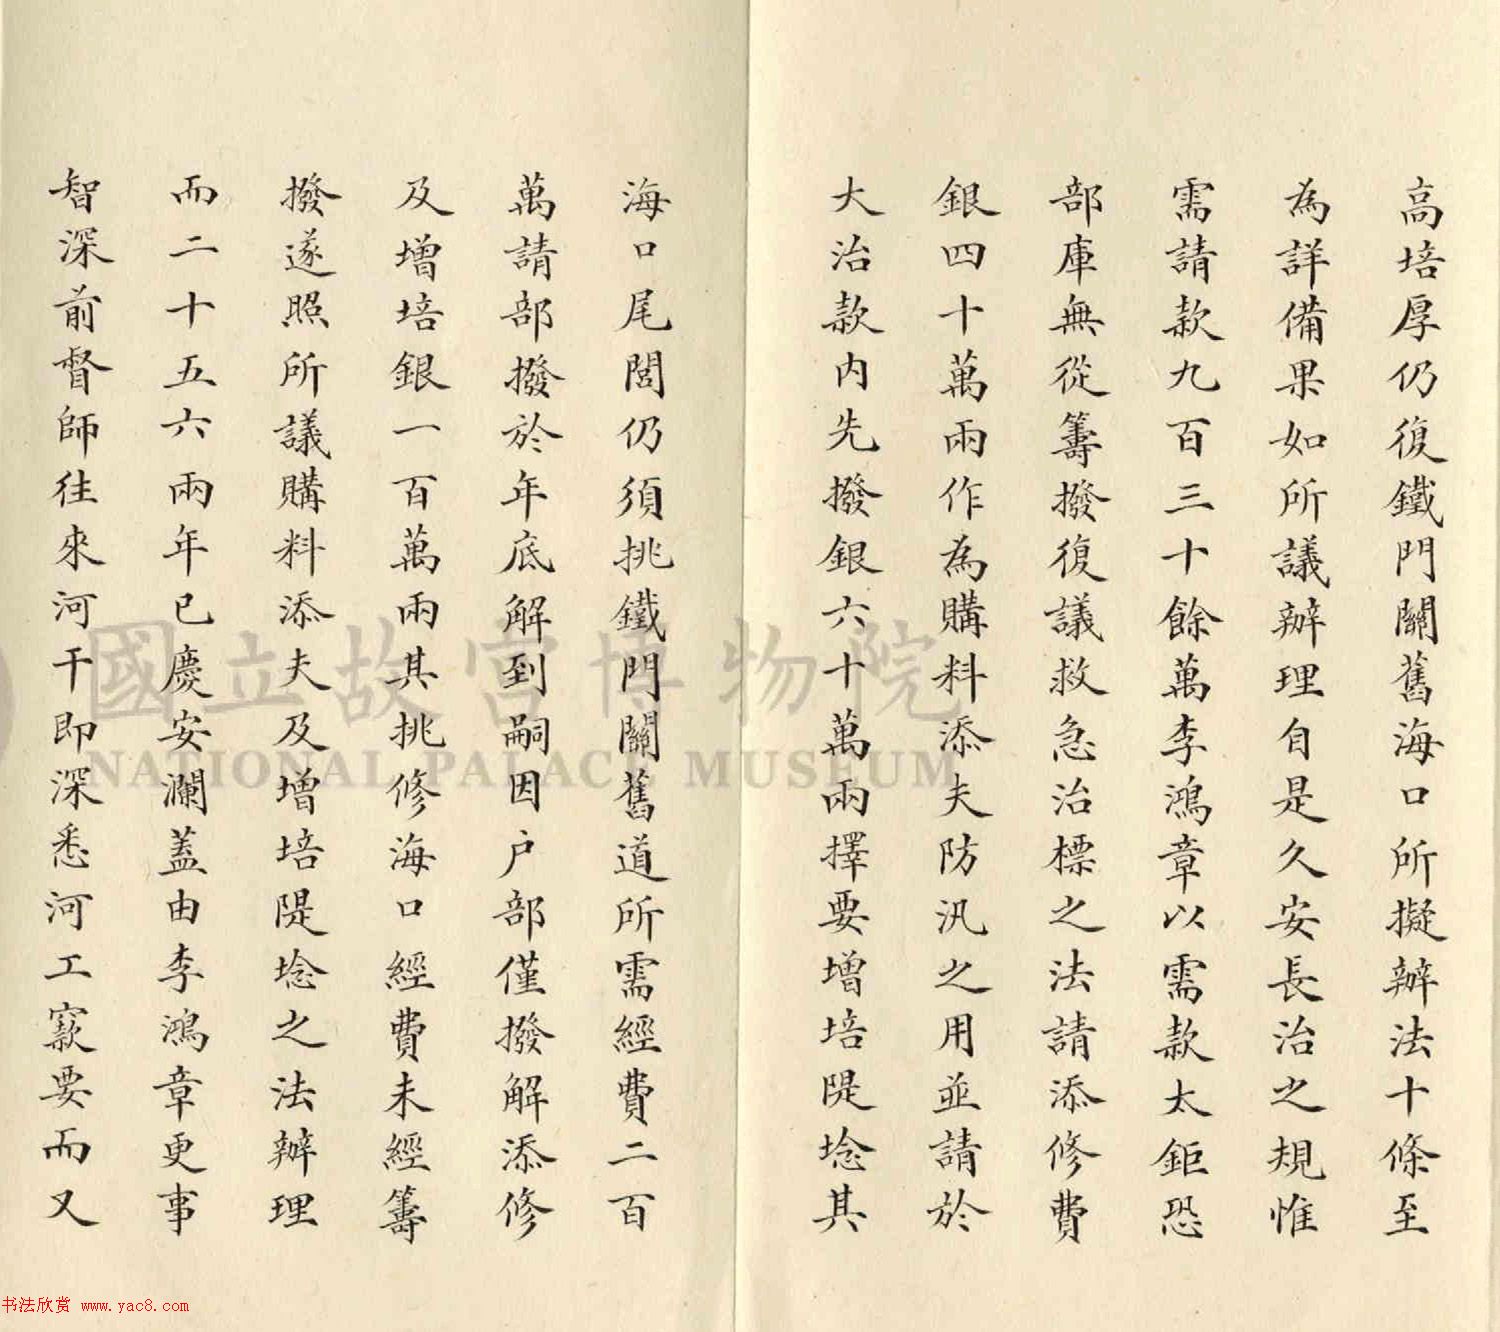 高培厚仍復鐵門關舊海口所擬辦法十條至
為詳備果如所議辦理自是久安長治之規惟
需請款九百三十餘萬李鴻章以需款太鉅恐
部庫無從籌撥復議救急治標之法請添修費
銀四十萬兩作為購料添夫防汛之用並請於
大治款内先撥銀六十萬兩擇要增培隄埝其
海口尾閭仍須挑鐵門關舊道所需經費二百
萬請部撥於年底解到嗣因户部僅撥解添修
及增培銀一百萬兩其挑修海口經費未經籌
撥遂照所議購料添夫及增培隄埝之法辦理
而二十五六兩年已慶安瀾蓋由李鴻章更事
智深前督師往來河干即深悉河工窾要而又
國立故宮博物院
NATIONAL PALACE MUSEUM
书法欣赏 www.yac8.com